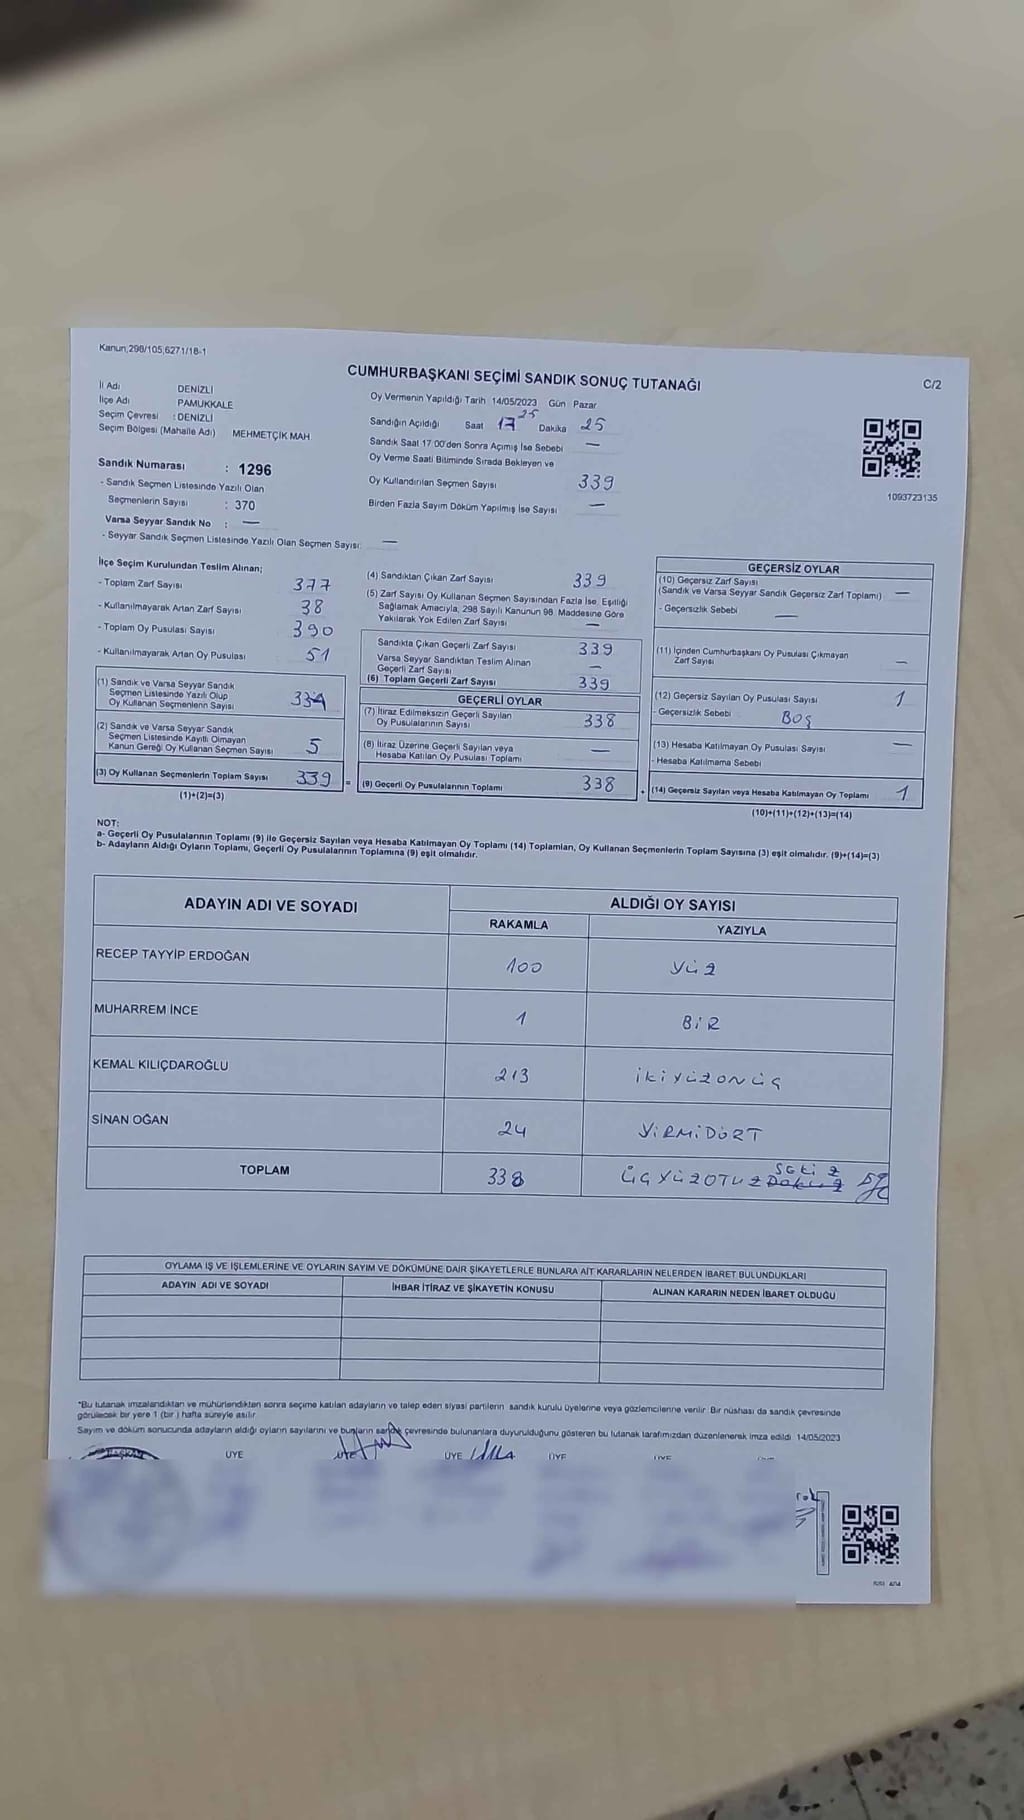 Kanun;298/105,6271/18-1
CUMHURBAŞKANI SEÇİMİ SANDIK SONUÇ TUTANAĞI
C/2
İl Adı DENİZLİ
İlçe Adı PAMUKKALE
Seçim Çevresi : DENİZLİ
Seçim Bölgesi (Mahalle Adı) MEHMETÇİK MAH
Oy Vermenin Yapıldığı Tarih 14/05/2023 Gün Pazar
Sandığın Açıldığı Saat 17 25 Dakika 25
Sandık Saat 17:00'den Sonra Açımış İse Sebebi —
Oy Verme Saati Bitiminde Sırada Bekleyen ve
Oy Kullandırılan Seçmen Sayısı 339
Birden Fazla Sayım Döküm Yapılmış İse Sayısı —
1093723135
Sandık Numarası : 1296
- Sandık Seçmen Listesinde Yazılı Olan
Seçmenlerin Sayısı : 370
Varsa Seyyar Sandık No : —
- Seyyar Sandık Seçmen Listesinde Yazılı Olan Seçmen Sayısı: —
İlçe Seçim Kurulundan Teslim Alınan;
- Toplam Zarf Sayısı 377
- Kullanılmayarak Artan Zarf Sayısı 38
- Toplam Oy Pusulası Sayısı 390
- Kullanılmayarak Artan Oy Pusulası 51
(1) Sandık ve Varsa Seyyar Sandık
Seçmen Listesinde Yazılı Olup
Oy Kullanan Seçmenlerin Sayısı 334
(2) Sandık ve Varsa Seyyar Sandık
Seçmen Listesinde Kayıtlı Olmayan
Kanun Gereği Oy Kullanan Seçmen Sayısı 5
(3) Oy Kullanan Seçmenlerin Toplam Sayısı 339 =
(1)+(2)=(3)
(4) Sandıktan Çıkan Zarf Sayısı 339
(5) Zarf Sayısı Oy Kullanan Seçmen Sayısından Fazla İse, Eşitliği
Sağlamak Amacıyla, 298 Sayılı Kanunun 98. Maddesine Göre
Yakılarak Yok Edilen Zarf Sayısı —
Sandıkta Çıkan Geçerli Zarf Sayısı 339
Varsa Seyyar Sandıktan Teslim Alınan
Geçerli Zarf Sayısı —
(6) Toplam Geçerli Zarf Sayısı 339
GEÇERLİ OYLAR
(7) İtiraz Edilmeksizin Geçerli Sayılan
Oy Pusulalarının Sayısı 338
(8) İtiraz Üzerine Geçerli Sayılan veya
Hesaba Katılan Oy Pusulası Toplamı —
(9) Geçerli Oy Pusulalarının Toplamı 338 +
GEÇERSİZ OYLAR
(10) Geçersiz Zarf Sayısı
(Sandık ve Varsa Seyyar Sandık Geçersiz Zarf Toplamı) —
- Geçersizlik Sebebi —
(11) İçinden Cumhurbaşkanı Oy Pusulası Çıkmayan
Zarf Sayısı —
(12) Geçersiz Sayılan Oy Pusulası Sayısı 1
- Geçersizlik Sebebi BOŞ
(13) Hesaba Katılmayan Oy Pusulası Sayısı —
- Hesaba Katılmama Sebebi
(14) Geçersiz Sayılan veya Hesaba Katılmayan Oy Toplamı 1
(10)+(11)+(12)+(13)=(14)
NOT:
a- Geçerli Oy Pusulalarının Toplamı (9) ile Geçersiz Sayılan veya Hesaba Katılmayan Oy Toplamı (14) Toplamları, Oy Kullanan Seçmenlerin Toplam Sayısına (3) eşit olmalıdır. (9)+(14)=(3)
b- Adayların Aldığı Oyların Toplamı, Geçerli Oy Pusulalarının Toplamına (9) eşit olmalıdır.
ADAYIN ADI VE SOYADI
ALDIĞI OY SAYISI
RAKAMLA YAZIYLA
RECEP TAYYİP ERDOĞAN 100 YÜZ
MUHARREM İNCE 1 BİR
KEMAL KILIÇDAROĞLU 213 İKİYÜZONÜÇ
SİNAN OĞAN 24 YİRMİDÖRT
TOPLAM 338 ÜÇYÜZOTUZ Dokuz SEKİZ
OYLAMA İŞ VE İŞLEMLERİNE VE OYLARIN SAYIM VE DÖKÜMÜNE DAİR ŞİKAYETLERLE BUNLARA AİT KARARLARIN NELERDEN İBARET BULUNDUKLARI
ADAYIN ADI VE SOYADI İHBAR İTİRAZ VE ŞİKAYETİN KONUSU ALINAN KARARIN NEDEN İBARET OLDUĞU
*Bu tutanak imzalandıktan ve mühürlendikten sonra seçime katılan adayların ve talep eden siyasi partilerin sandık kurulu üyelerine veya gözlemcilerine verilir. Bir nüshası da sandık çevresinde
görülecek bir yere 1 (bir ) hafta süreyle asılır.
Sayım ve döküm sonucunda adayların aldığı oyların sayılarını ve bunların sandık çevresinde bulunanlara duyurulduğunu gösteren bu tutanak tarafımızdan düzenlenerek imza edildi. 14/05/2023
BAŞKAN ÜYE ÜYE ÜYE ÜYE ÜYE